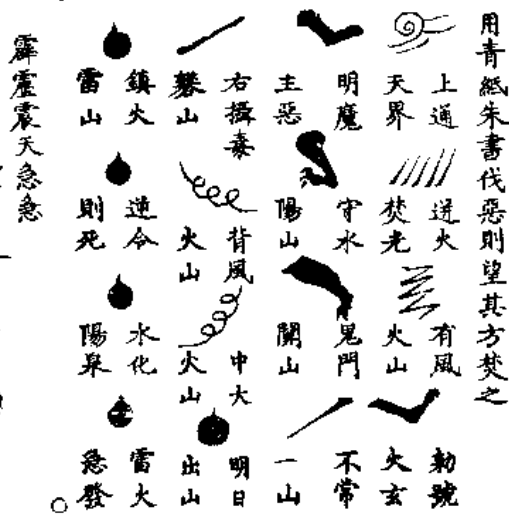 用青紙朱書伐惡則望其方焚之
上通
天界
迸火
焚光
有風
火山
勅號
火玄
明魔
主惡
守水
陽山
鬼門
關山
不常
一山
右攝毒
山
背風
火山
中大
火山
明日
出山
鎮火
雷山
逆令
則死
水化
陽泉
雷火
急發
霹靂震天急急